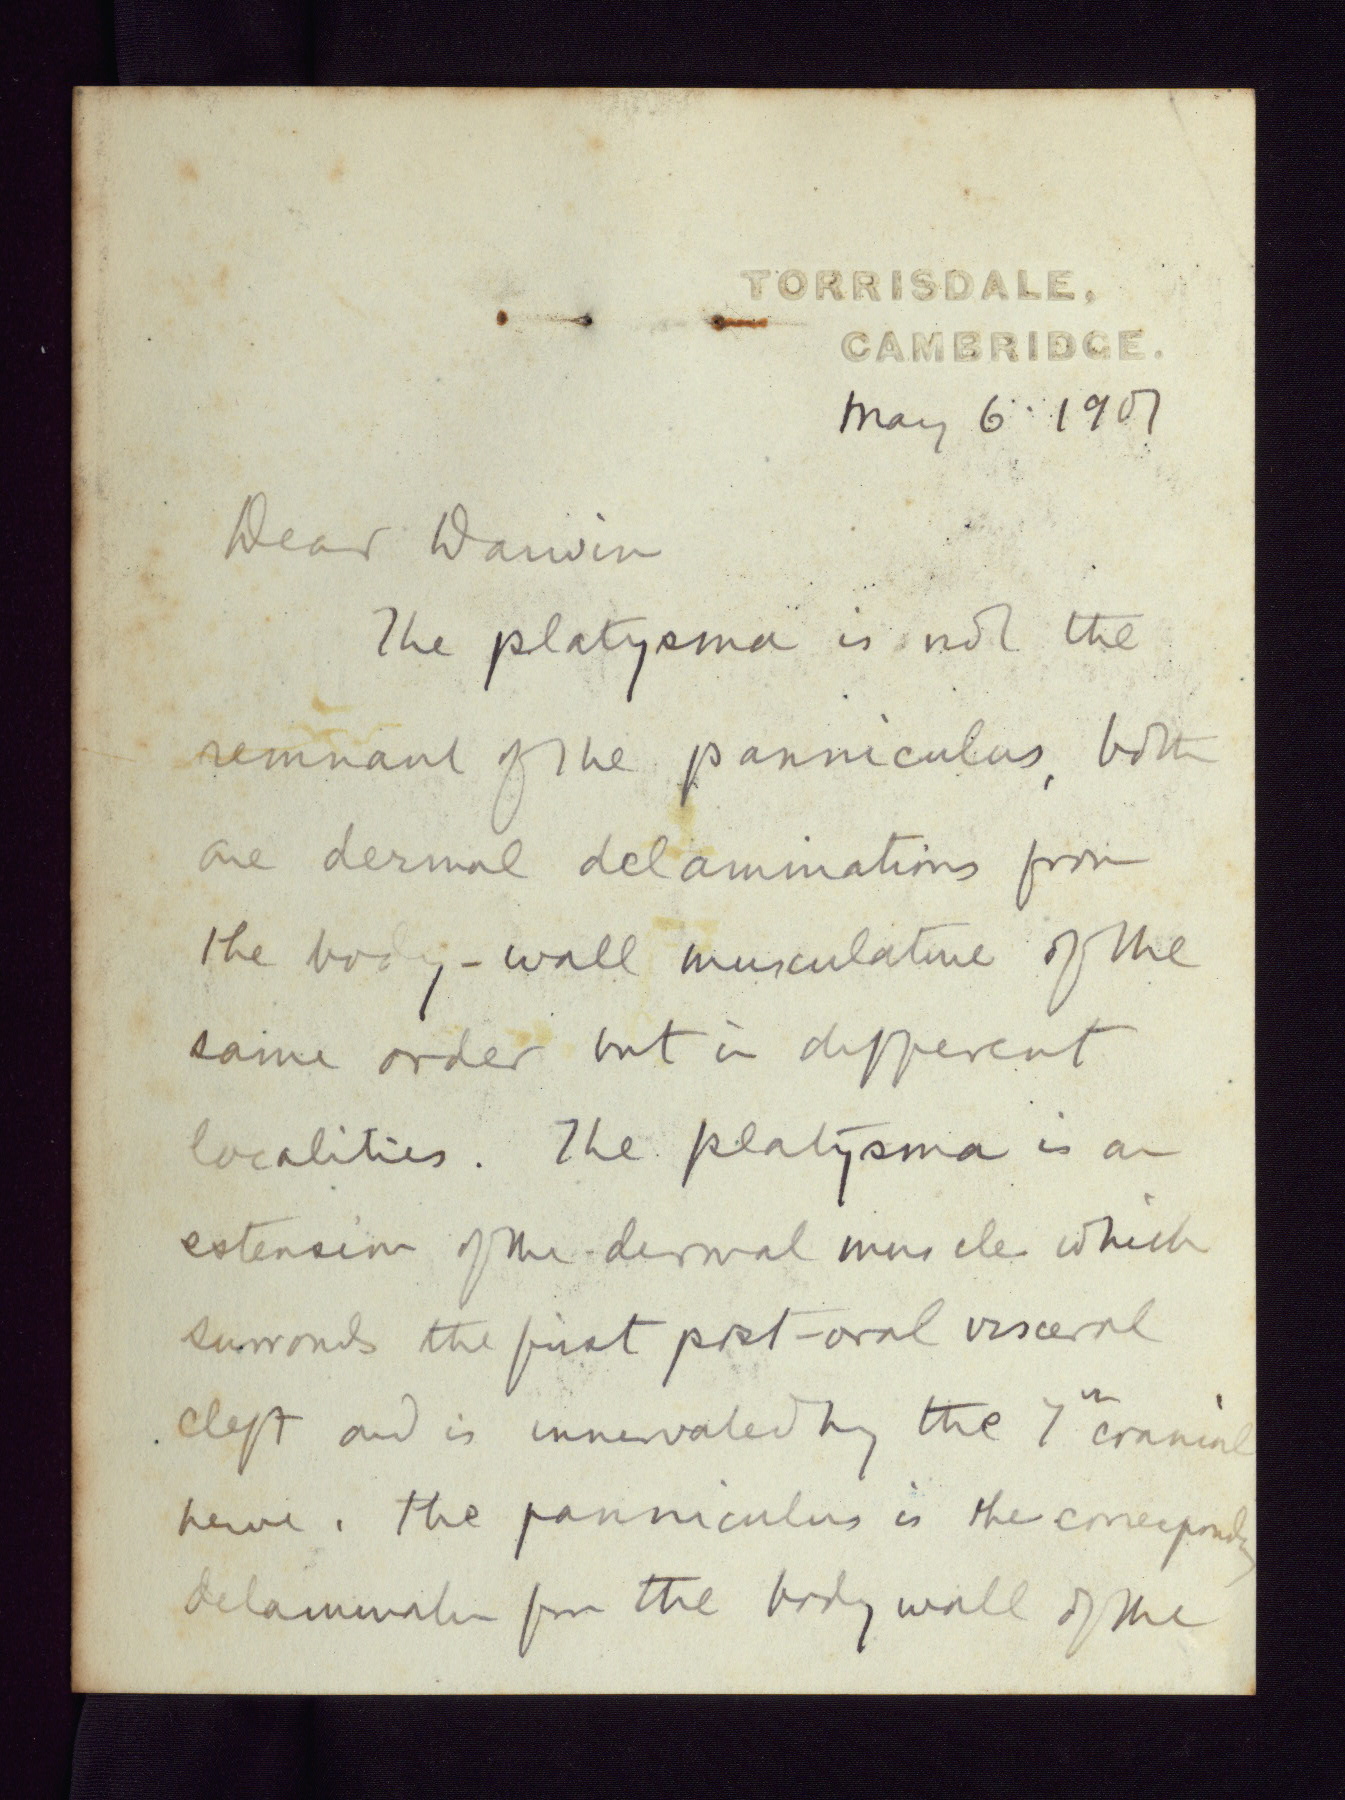 TORRISDALE,
CAMBRIDGE.
May 6. 1907
Dear Darwin
The platysma is not the
remnant of the panniculus, both
are dermal delaminations from
the body-wall musculature of the
same order but in different
localities. The platysma is an
extension of the dermal muscle which
surronds the first post-oral visceral
cleft and is innervated by the 7th cranial
nerve. The panniculus is the corresponding
delamination from the body wall of the